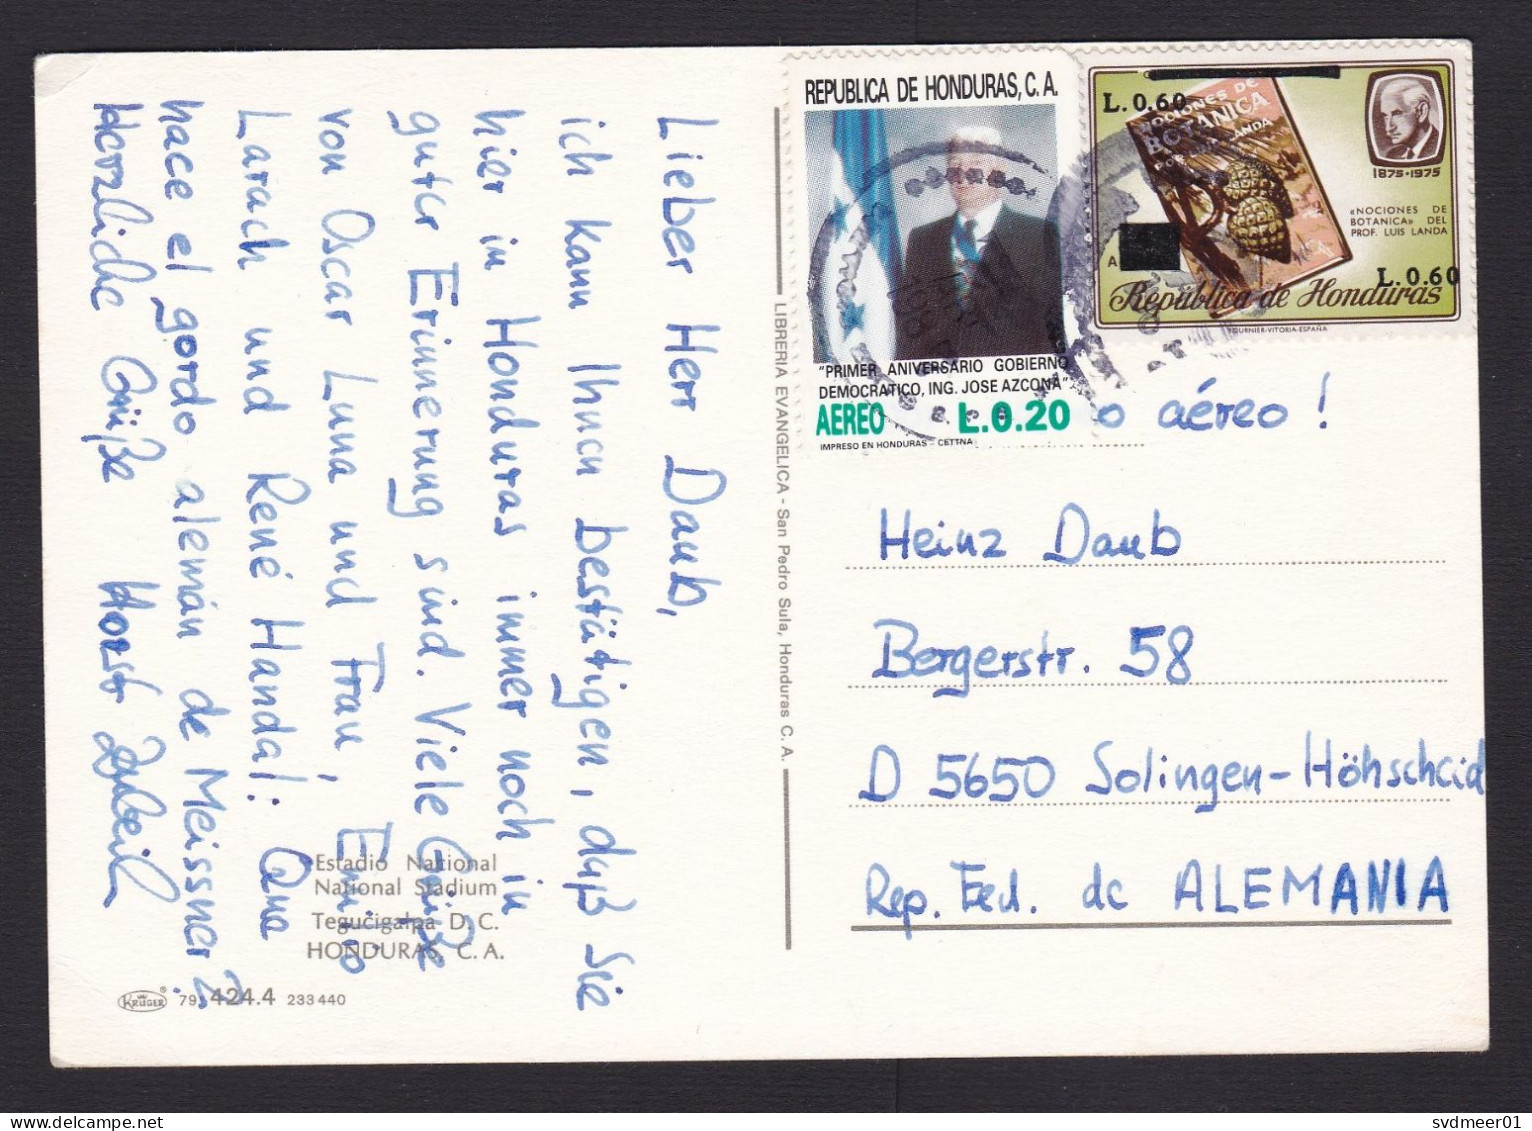 Lieber Herr Daub,
ich kann Ihnen bestätigen, daß Sie
hier in Honduras immer noch in
guter Erinnerung sind. Viele Grüße
von Oscar Luna und Frau, Emilio
Larach und René Handal: Que
hace el gordo alemán de Meissner?
Herzliche Grüße Horst
Estadio National
National Stadium
Tegucigalpa D. C.
HONDURAS, C. A.
KRÜGER 424.4 233 440
LIBRERIA EVANGELICA - San Pedro Sula, Honduras C. A.
REPUBLICA DE HONDURAS, C. A.
"PRIMER ANIVERSARIO GOBIERNO
DEMOCRATICO, ING. JOSE AZCONA"
AEREO L.0.20
IMPRESO EN HONDURAS - CETTNA
L. 0.60
NOCIONES DE
BOTANICA
1875-1975
«NOCIONES DE
BOTANICA» DEL
PROF. LUIS LANDA
L. 0.60
República de Honduras
FOURNIER-VITORIA-ESPAÑA
o aéreo!
Heinz Daub
Bergerstr. 58
D 5650 Solingen-Höhscheid
Rep. Fed. de ALEMANIA
svdmeer01